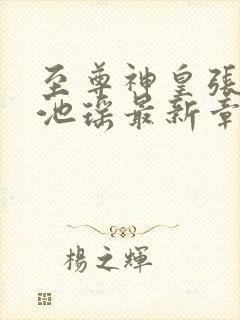 至尊神皇張
池瑤最新章
楊之輝